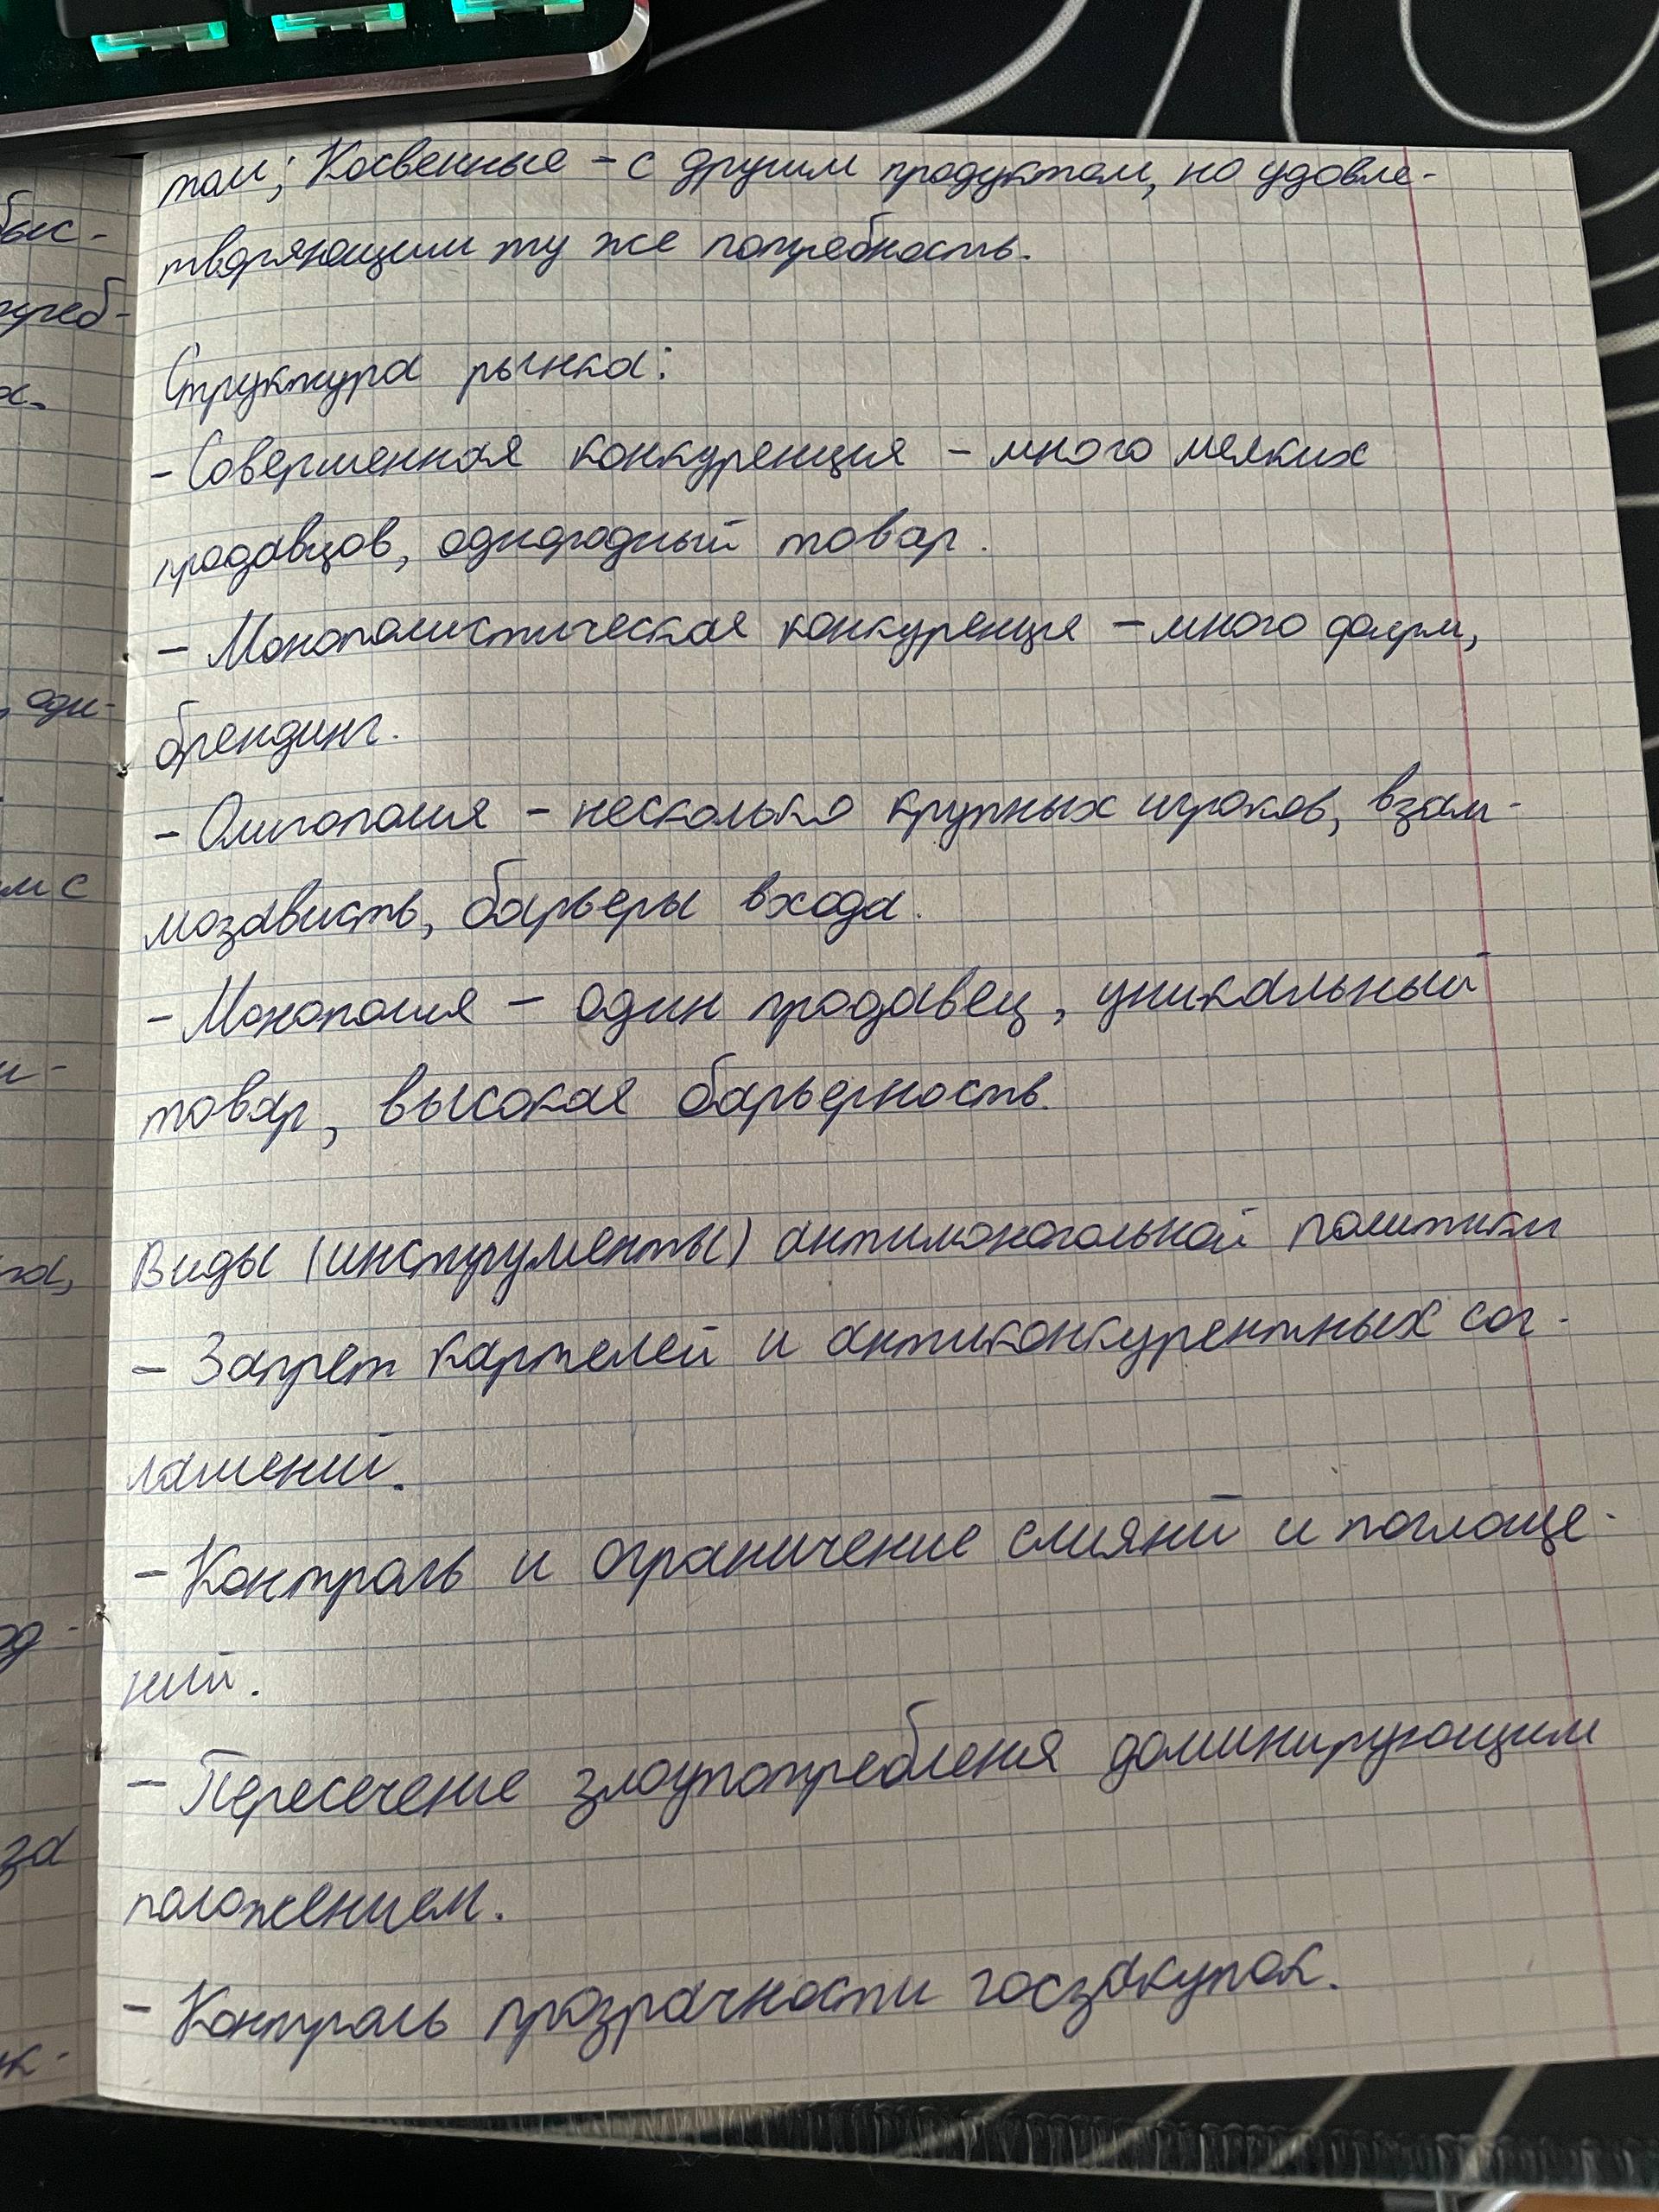 том; Косвенные - с другим продуктом, но удовле-
творяющим ту же потребность.
Структура рынка:
- Совершенная конкуренция - много мелких
продавцов, однородный товар.
- Монополистическая конкуренция - много фирм,
брендинг.
- Олигополия - несколько крупных игроков, взаи-
мозависть, барьеры входа.
- Монополия - один продавец, уникальный
товар, высокая барьерность.
Виды (инструменты) антимонопольной политики
- Запрет картелей и антиконкурентных сог-
лашений.
- Контроль и ограничение слияний и поглоще-
ний.
- Пересечение злоупотребления доминирующим
положением.
- Контроль прозрачности госзакупок.